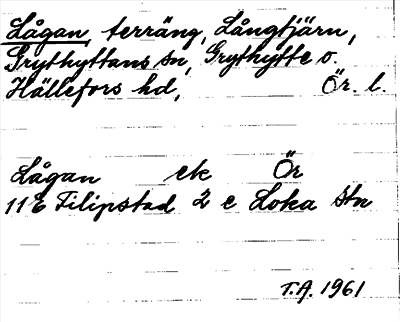 Lågan, terräng, Långtjärn,
Grythyttans sn, Grythytte o.
Hällefors hd, Ör. l.
Lågan ek Ör
11 E Filipstad 2 e Loka stn
T.A. 1961